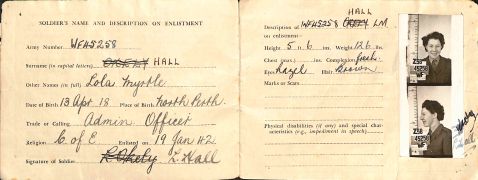 4
SOLDIER'S NAME AND DESCRIPTION ON ENLISTMENT
Army Number WFH5258
Surname (in capital letters) HALL
Other Names (in full) Lola Myrtle
Date of Birth 13 Apr 18 Place of Birth North Perth.
Trade or Calling Admin Officer
Religion C of E Enlisted on 19 Jan 42
Signature of Soldier L. Hall
HALL
Description of WFH5258 LM
on enlistment—
Height 5 ft 6 ins. Weight 126 lbs
Chest (max.) ins. Complexion fresh.
Eyes Hazel Hair Brown
Marks or Scars
Physical disabilities (if any) and special char-
acteristics (e.g., impediment in speech)
Z58
WF
Z58
WF